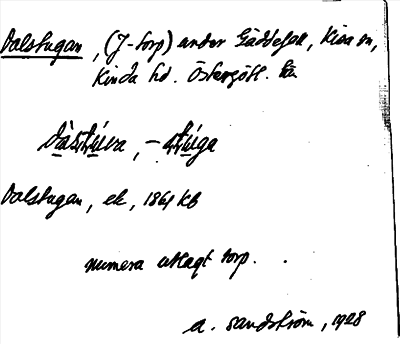 Dalstugan, (J-torp) under Gäddefall, Kisa sn,
Kinda hd. Östergötl. län
dàstúva, -stúga
Dalstugan, ek, 1864 Kb
numera utlagt torp.
A. Sandström, 1928